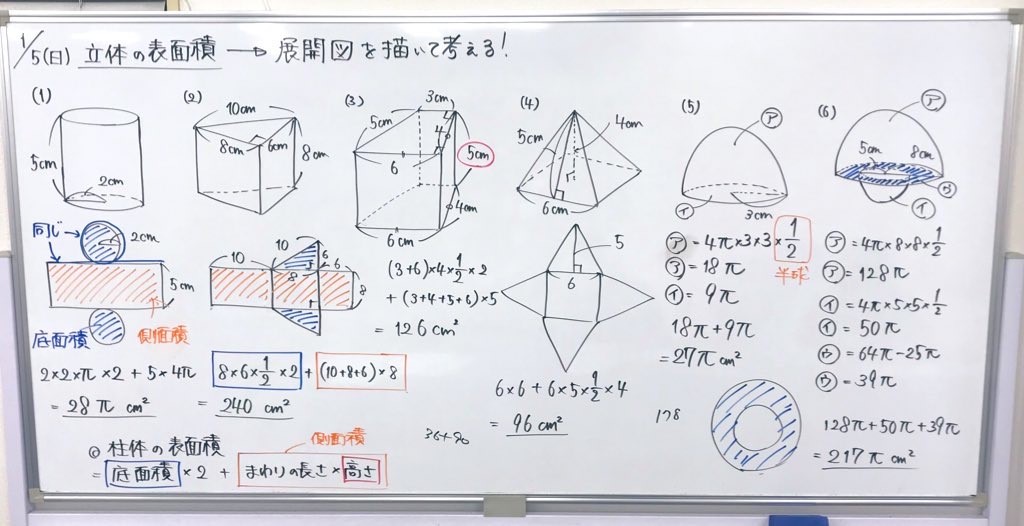 1/5(日) 立体の表面積 → 展開図を描いて考える!
(1)
5cm
2cm
同じ
2cm
5cm
底面積
側面積
2×2×π×2+5×4π
=28π cm²
(2)
10cm
8cm
6cm
8cm
10
10
6
8
6
8
8×6×1/2×2+(10+8+6)×8
=240cm²
(3)
3cm
5cm
4
6
5cm
4cm
6cm
(3+6)×4×1/2×2
+(3+4+5+6)×5
=126cm²
(4)
5cm
4cm
6cm
5
6
6×6+6×5×1/2×4
=96cm²
(5)
㋐
㋑
3cm
㋐=4π×3×3×1/2
半球
㋐=18π
㋑=9π
18π+9π
=27πcm²
(6)
㋐
5cm
8cm
㋒
㋑
㋐=4π×8×8×1/2
㋐=128π
㋑=4π×5×5×1/2
㋑=50π
㋒=64π-25π
㋒=39π
128π+50π+39π
=217πcm²
◎柱体の表面積
側面積
=底面積×2+まわりの長さ×高さ